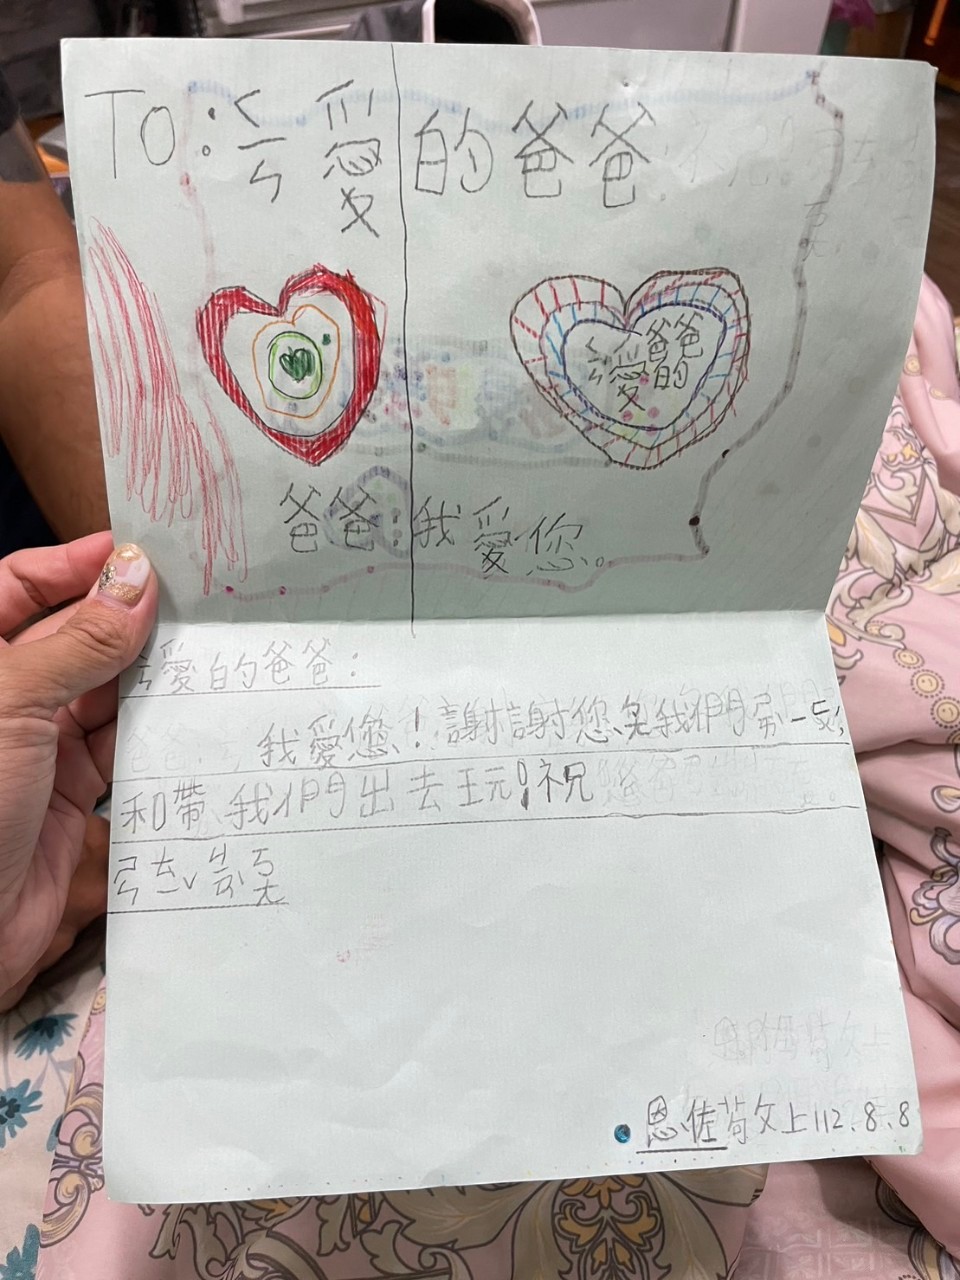 TO:ㄑㄧㄣ愛的爸爸:
ㄑㄧㄣ愛的爸爸
爸爸:我愛您。
ㄧㄣ愛的爸爸:
我愛您!謝謝您 我們
和帶我們出去玩!祝
ㄊㄧˇ ㄐㄧㄢˋ ㄎㄤ
恩佐敬上112.8.8